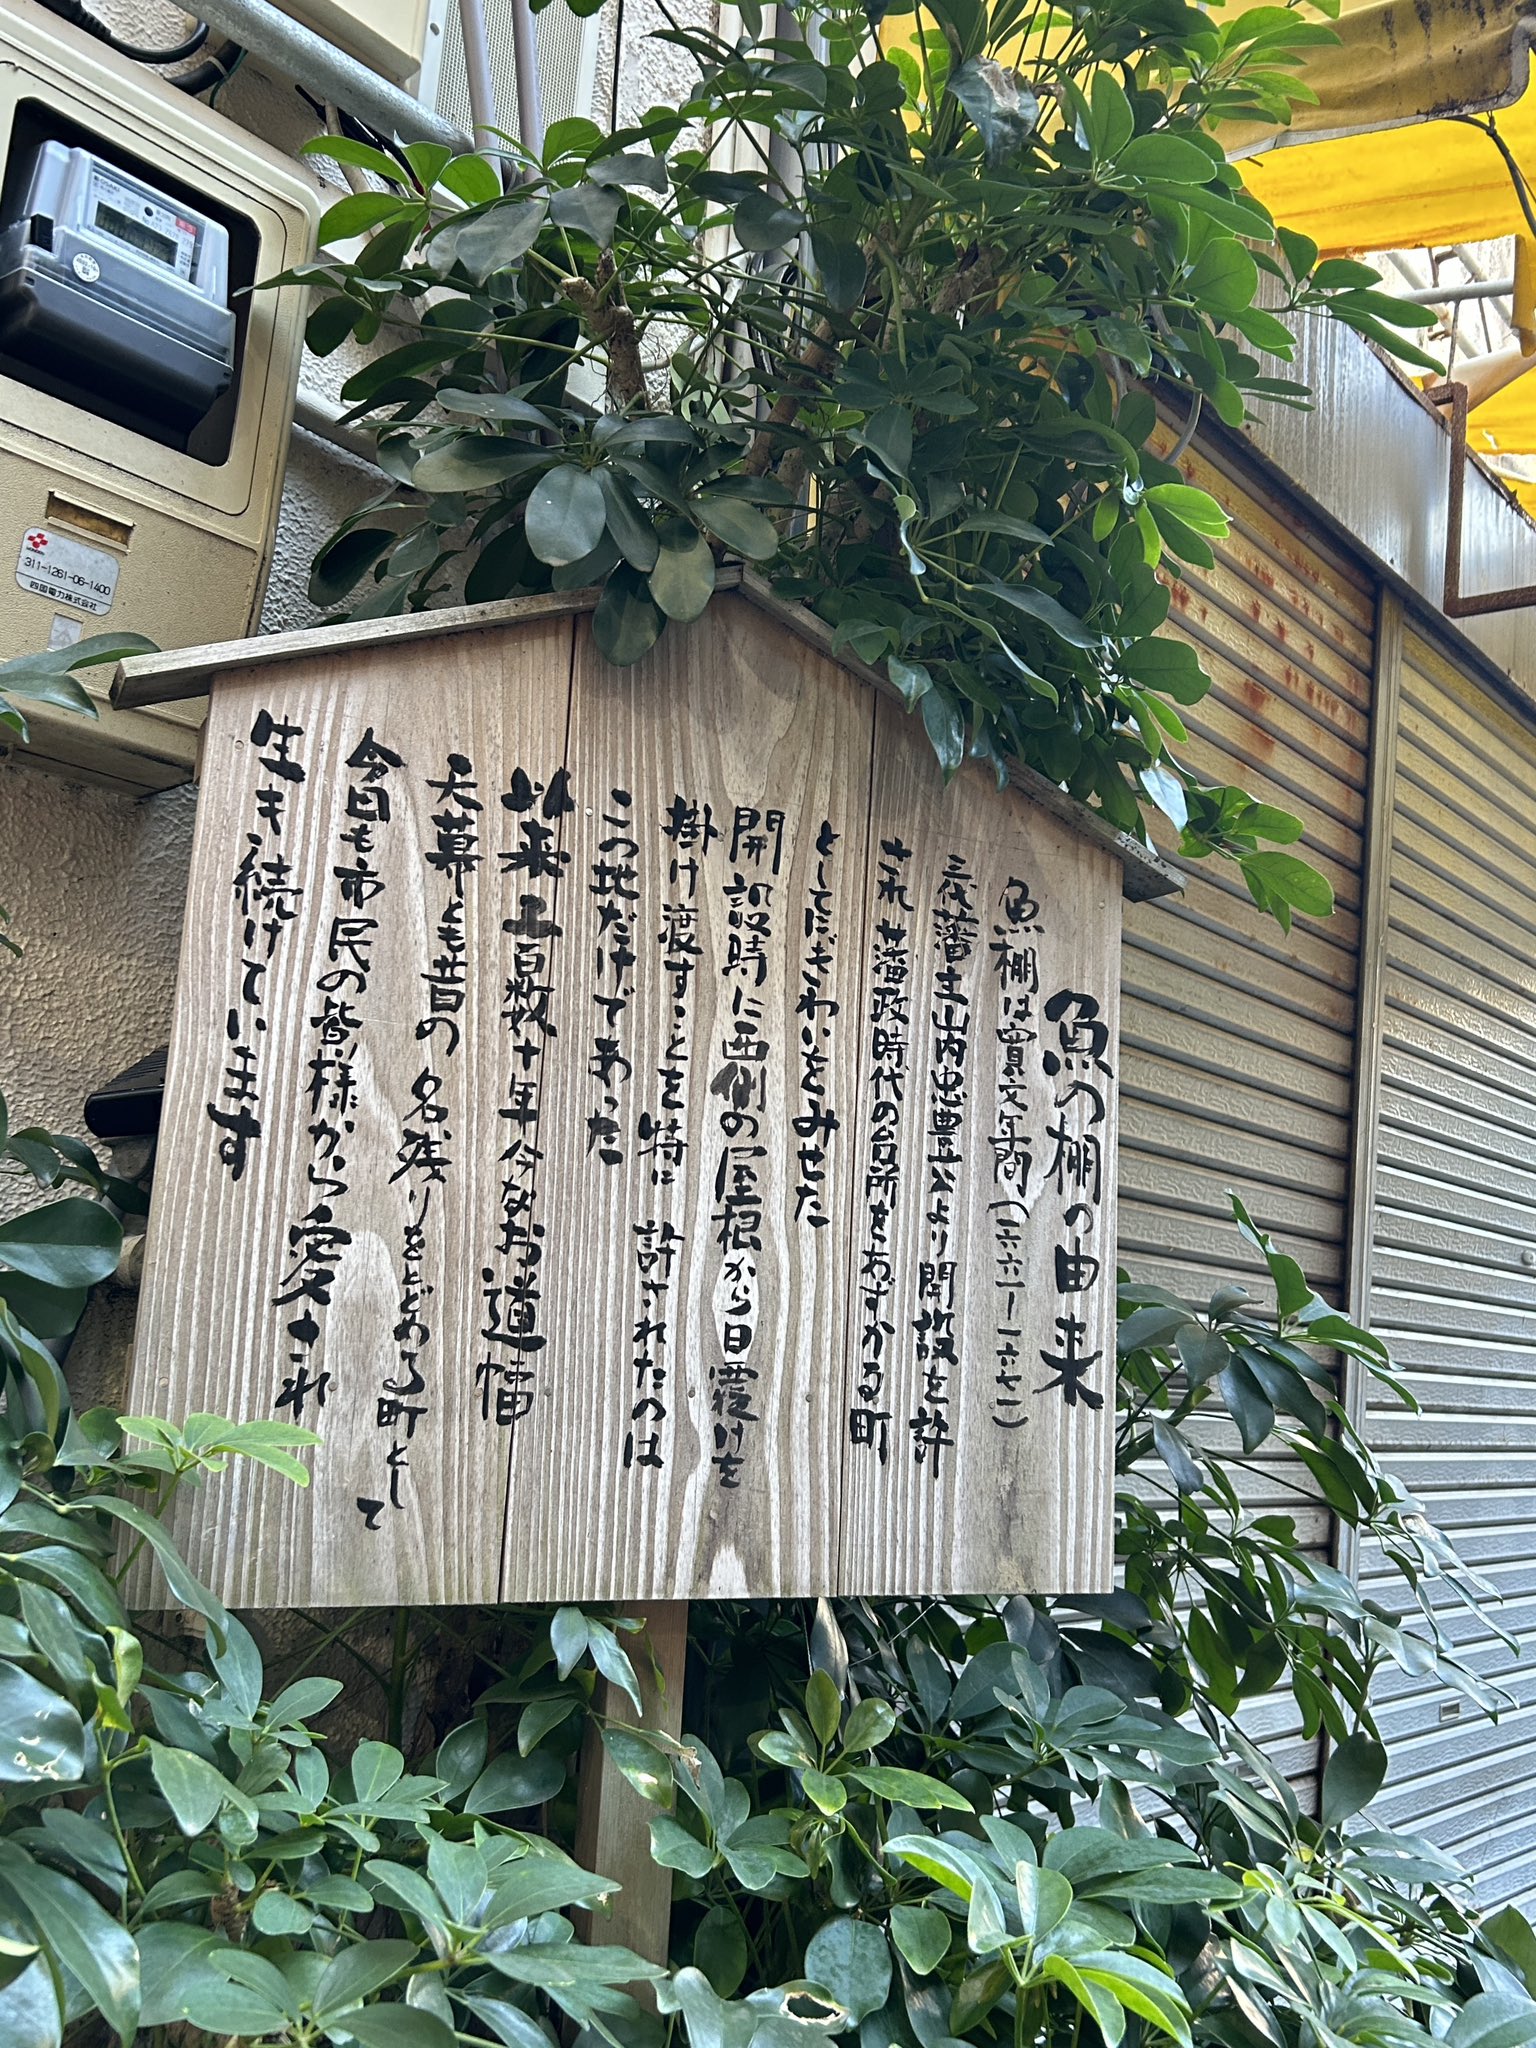 魚の棚の由来
魚棚は寛文年間(一六六一ー一六七一)
二代藩主山内忠豊公より開設を許
され 藩政時代の台所をあずかる町
としてにぎわいをみせた
開設時に西側の屋根から日覆けを
掛け渡すことを特に 許されたのは
この地だけであった
以来三百数十年今なお道幅
天幕とも昔の 名残りをとどめる町として
今日も市民の皆様から愛され
生き続けています
311-1261-06-1400
四国電力株式会社